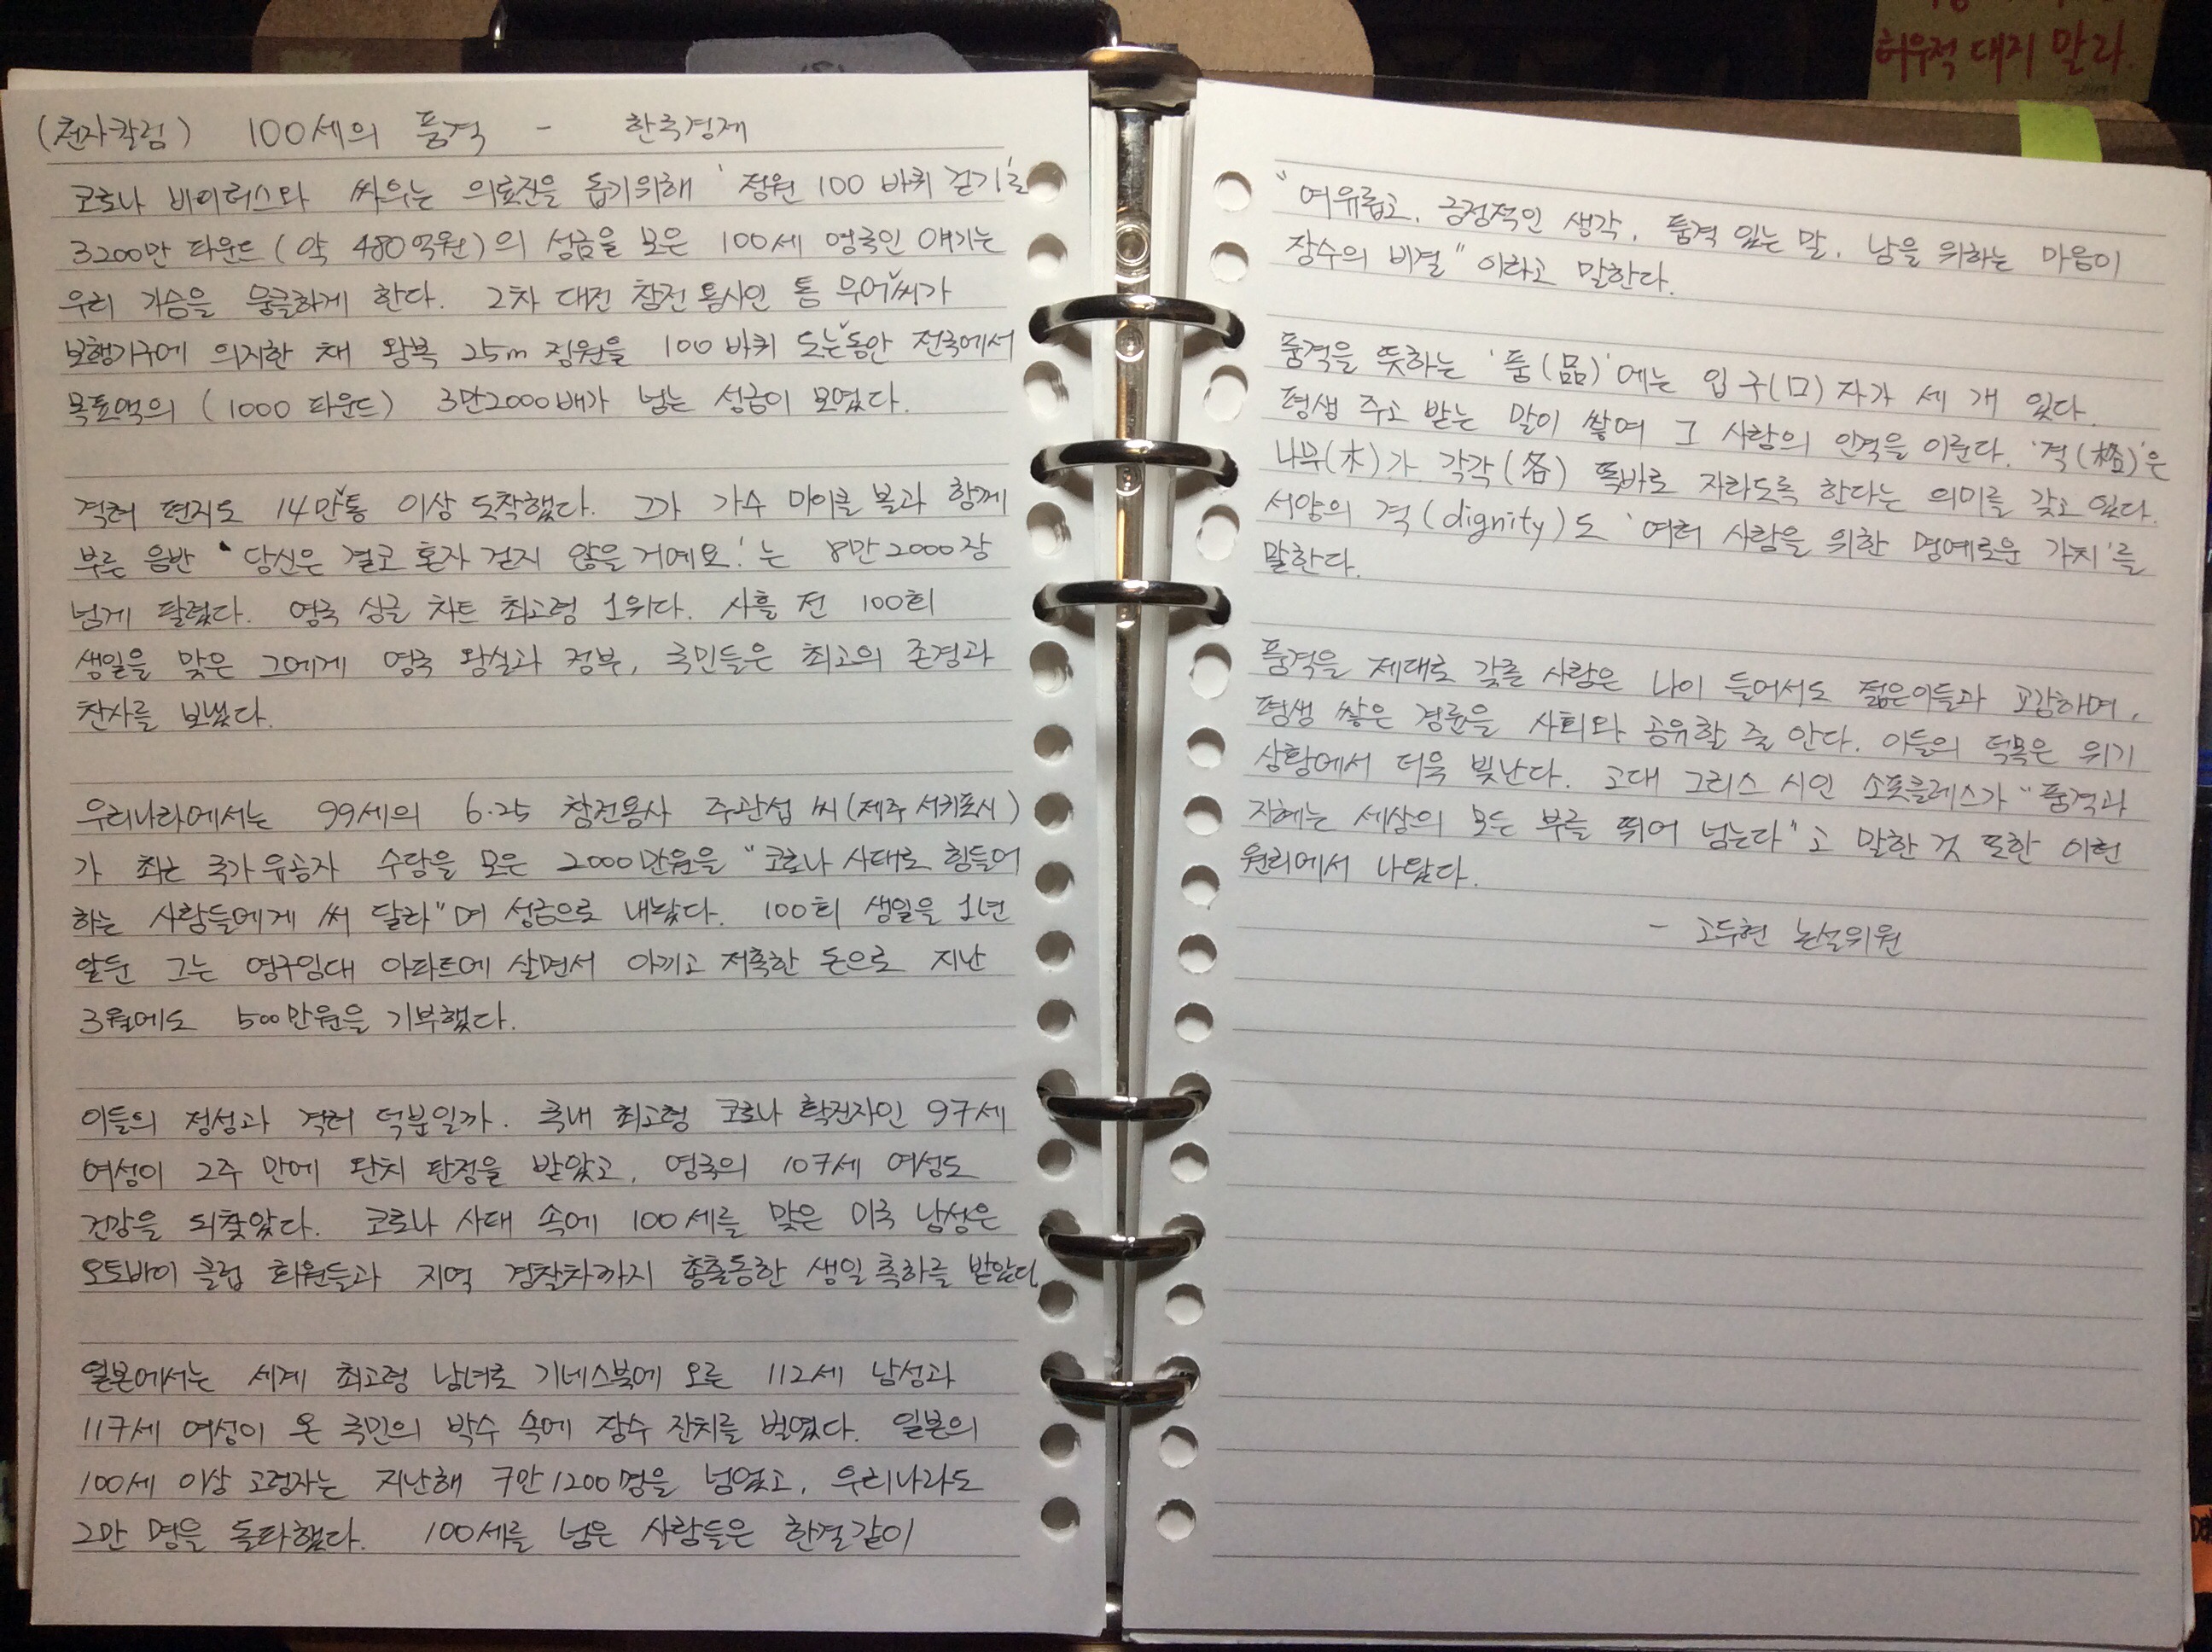 허우적 대지 말라.
(천자칼럼) 100세의 품격 - 한국경제
코로나 바이러스와 싸우는 의료진을 돕기위해 '정원 100 바퀴 걷기'로
3200만 파운드(약 480억원)의 성금을 모은 100세 영국인 얘기는
우리 가슴을 뭉클하게 한다. 2차 대전 참전 용사인 톰 무어씨가
보행기구에 의지한 채 왕복 25m 정원을 100 바퀴 도는동안 전국에서
목표액의 (1000 파운드) 3만2000배가 넘는 성금이 모였다.
격려 편지도 14만통 이상 도착했다. 그가 가수 마이클 볼과 함께
부른 음반 '당신은 결코 혼자 걷지 않을거예요.'는 8만 2000장
넘게 팔렸다. 영국 싱글 차트 최고령 1위다. 사흘 전 100회
생일을 맞은 그에게 영국 왕실과 정부, 국민들은 최고의 존경과
찬사를 보냈다.
우리나라에서는 99세의 6·25 참전용사 주관섭 씨(제주 서귀포시)
가 최근 국가유공자 수당을 모은 2000만원을 "코로나 사태로 힘들어
하는 사람들에게 써 달라"며 성금으로 내놨다. 100회 생일을 1년
앞둔 그는 영구임대 아파트에 살면서 아끼고 저축한 돈으로 지난
3월에도 500만원을 기부했다.
이들의 정성과 격려 덕분일까. 국내 최고령 코로나 확진자인 97세
여성이 2주 만에 완치 판정을 받았고, 영국의 107세 여성도
건강을 되찾았다. 코로나 사태 속에 100세를 맞은 미국 남성은
오토바이 클럽 회원들과 지역 경찰차까지 총출동한 생일 축하를 받았다
일본에서는 세계 최고령 남녀로 기네스북에 오른 112세 남성과
117세 여성이 온 국민의 박수 속에 장수 잔치를 벌였다. 일본의
100세 이상 고령자는 지난해 7만1200명을 넘었고, 우리나라도
2만 명을 돌파했다. 100세를 넘은 사람들은 한결같이
"여유롭고, 긍정적인 생각, 품격 있는 말, 남을 위하는 마음이
장수의 비결"이라고 말한다.
품격을 뜻하는 '품(品)'에는 입 구(口) 자가 세 개 있다.
평생 주고 받는 말이 쌓여 그 사람의 인격을 이룬다. '격(格)'은
나무(木)가 각각(各) 똑바로 자라도록 한다는 의미를 갖고 있다.
서양의 격(dignity)도 '여러 사람을 위한 명예로운 가치'를
말한다.
품격을 제대로 갖춘 사람은 나이 들어서도 젊은이들과 교감하며,
평생 쌓은 경륜을 사회와 공유할 줄 안다. 이들의 덕목은 위기
상황에서 더욱 빛난다. 고대 그리스 시인 소포클레스가 "품격과
지혜는 세상의 모든 부를 뛰어 넘는다"고 말한 것 또한 이런
원리에서 나왔다.
- 고두현 논설위원